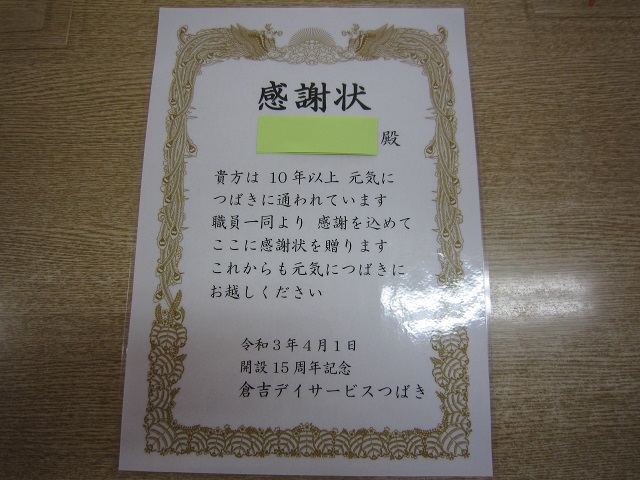 感謝状
殿
貴方は 10年以上 元気に
つばきに通われています
職員一同より 感謝を込めて
ここに感謝状を贈ります
これからも元気につばきに
お越しください
令和3年4月1日
開設15周年記念
倉吉デイサービスつばき